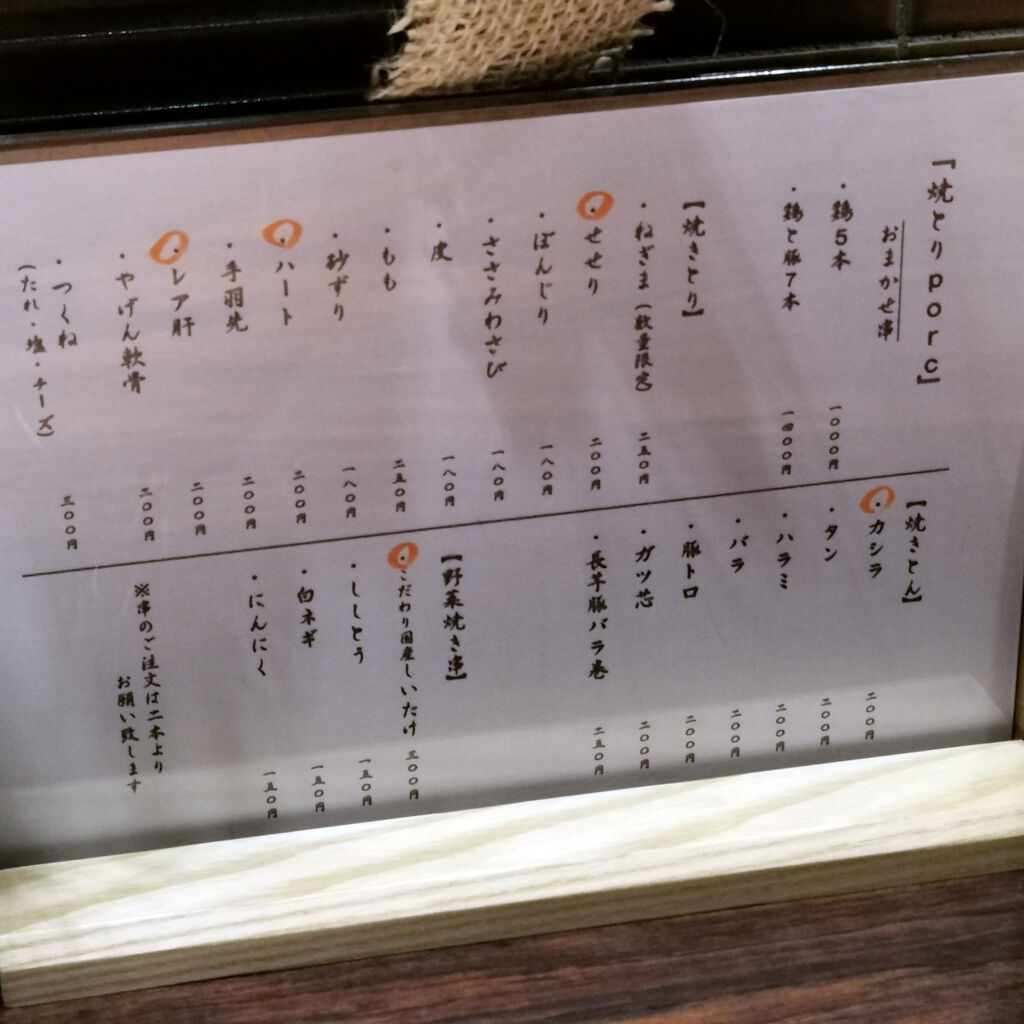 『焼とりporc』
おまかせ串
・鶏5本 一〇〇〇円
・鶏と豚7本 一四〇〇円
【焼きとり】
・ねぎま(数量限定) 二五〇円
・せせり 二〇〇円
・ぼんじり 一八〇円
・ささみわさび 一八〇円
・皮 一八〇円
・もも 二五〇円
・砂ずり 一八〇円
・ハート 二〇〇円
・手羽先 二〇〇円
・レア肝 二〇〇円
・やげん軟骨 二〇〇円
・つくね 三〇〇円
(たれ・塩・チーズ)
【焼きとん】
・カシラ 二〇〇円
・タン 二〇〇円
・ハラミ 二〇〇円
・バラ 二〇〇円
・豚トロ 二〇〇円
・ガツ芯 二〇〇円
・長芋豚バラ巻 二五〇円
【野菜焼き串】
・こだわり国産しいたけ 三〇〇円
・ししとう 一五〇円
・白ネギ 一五〇円
・にんにく 一五〇円
※串のご注文は二本より
お願い致します